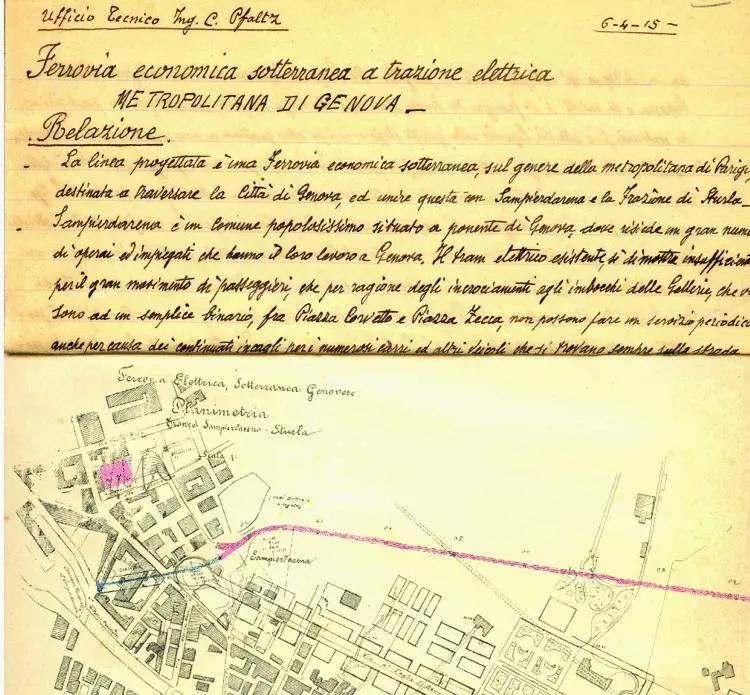 Ufficio Tecnico Ing. C. Pfaltz
6-4-15-
Ferrovia economica sotterranea a trazione elettrica
METROPOLITANA DI GENOVA_
Relazione.
La linea progettata è una Ferrovia economica sotterranea sul genere della metropolitana di Parigi,
destinata a traversare la Città di Genova, ed unire questa con Sampierdarena e la Frazione di Sturla_
Sampierdarena è un comune popolosissimo situato a ponente di Genova, dove risiede un gran nume
di operai ed impiegati che hanno il loro lavoro a Genova. Il tram elettrico esistente, si dimostra insufficient
per il gran movimento di passeggieri, che per ragione degli incrociamenti agli imbocchi delle Gallerie, che vi
sono ad un semplice binario, fra Piazza Corvetto e Piazza Zecca, non possono fare un servizio periodico
anche per causa dei continuati incagli per i numerosi carri ed altri veicoli che si trovano sempre sulla strada
Ferrovia Elettrica, Sotterranea Genovese
Planimetria
Tronco Sampierdarena - Sturla
Scala
Sampierdarena